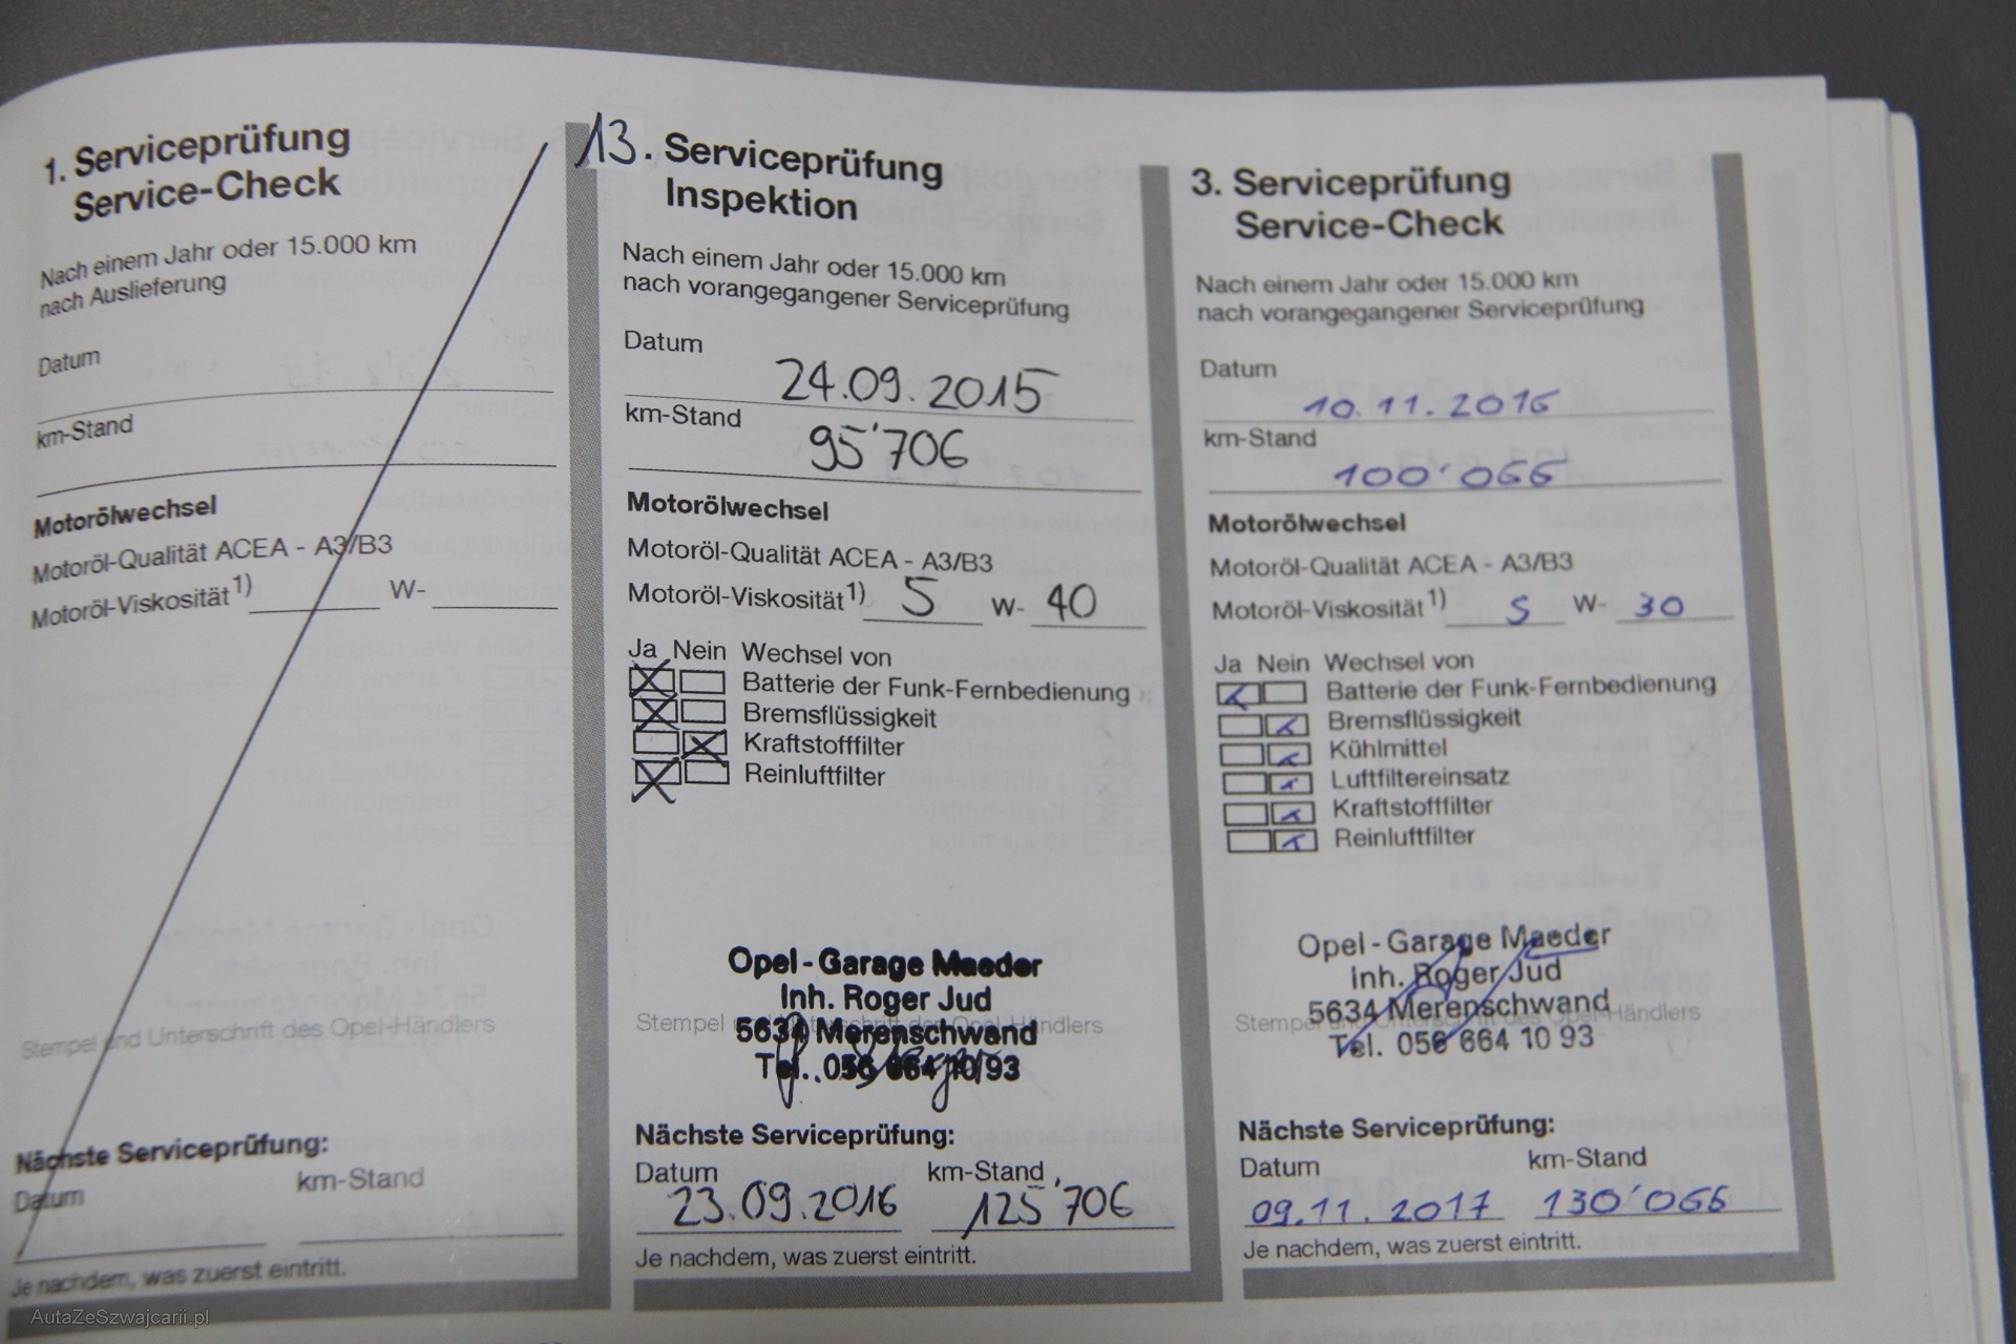 1. Serviceprüfung
Service-Check
Nach einem Jahr oder 15.000 km
nach Auslieferung
Datum
km-Stand
Motorölwechsel
Motoröl-Qualität ACEA - A3/B3
Motoröl-Viskosität 1) W-
Stempel und Unterschrift des Opel-Händlers
Nächste Serviceprüfung:
Datum km-Stand
Je nachdem, was zuerst eintritt.
13. Serviceprüfung
Inspektion
Nach einem Jahr oder 15.000 km
nach vorangegangener Serviceprüfung
Datum
24.09.2015
km-Stand
95'706
Motorölwechsel
Motoröl-Qualität ACEA - A3/B3
Motoröl-Viskosität 1) 5 W- 40
Ja Nein Wechsel von
Batterie der Funk-Fernbedienung
Bremsflüssigkeit
Kraftstofffilter
Reinluftfilter
Opel-Garage Maeder
Inh. Roger Jud
Stempel und Unterschrift des Opel-Händlers
5634 Merenschwand
Tel. 056 664 10 93
Nächste Serviceprüfung:
Datum km-Stand
23.09.2016 125'706
Je nachdem, was zuerst eintritt.
3. Serviceprüfung
Service-Check
Nach einem Jahr oder 15.000 km
nach vorangegangener Serviceprüfung
Datum
10.11.2016
km-Stand
100'066
Motorölwechsel
Motoröl-Qualität ACEA - A3/B3
Motoröl-Viskosität 1) 5 W- 30
Ja Nein Wechsel von
Batterie der Funk-Fernbedienung
Bremsflüssigkeit
Kühlmittel
Luftfiltereinsatz
Kraftstofffilter
Reinluftfilter
Opel-Garage Maeder
Inh. Roger Jud
5634 Merenschwand
Stempel und Unterschrift des Opel-Händlers
Tel. 056 664 10 93
Nächste Serviceprüfung:
Datum km-Stand
09.11.2017 130'066
Je nachdem, was zuerst eintritt.
AutaZeSzwajcarii.pl